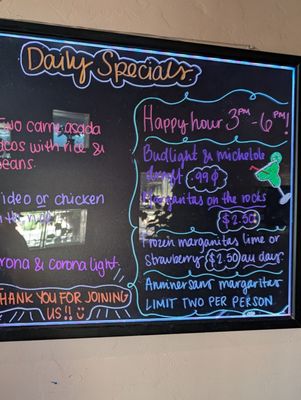 Daily Specials
two carne asada
tacos with rice &
beans.
fideo or chicken
corona & corona light
THANK YOU FOR JOINING
US!!
Happy hour 3PM - 6PM!
Budlight & michelob
draft .99¢
Margaritas on the rocks
$2.50
Frozen margaritas lime or
strawberry $2.50 all day.
Anniversary margaritas
LIMIT TWO PER PERSON